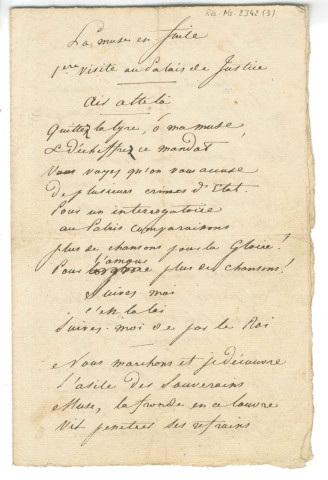 Res. Ms. 2342 (3)
La muse en fuite
1ere visite au Palais de Justice
Air
Quittez la lyre, ô ma muse,
& déchiffrez ce mandat
Vous voyez qu'on vous accuse
de plusieurs crimes d'Etat.
Pour un interrogatoire
au Palais comparaissons
plus de chansons pour la Gloire!
l'amour
Pour plus de chansons!
Suivez moi
c'est la loi
Suivez-moi de par le Roi
Nous marchons et je découvre
L'asile des Souverains
Muse, la fronde en ce louvre
Vit penetrer ses refrains